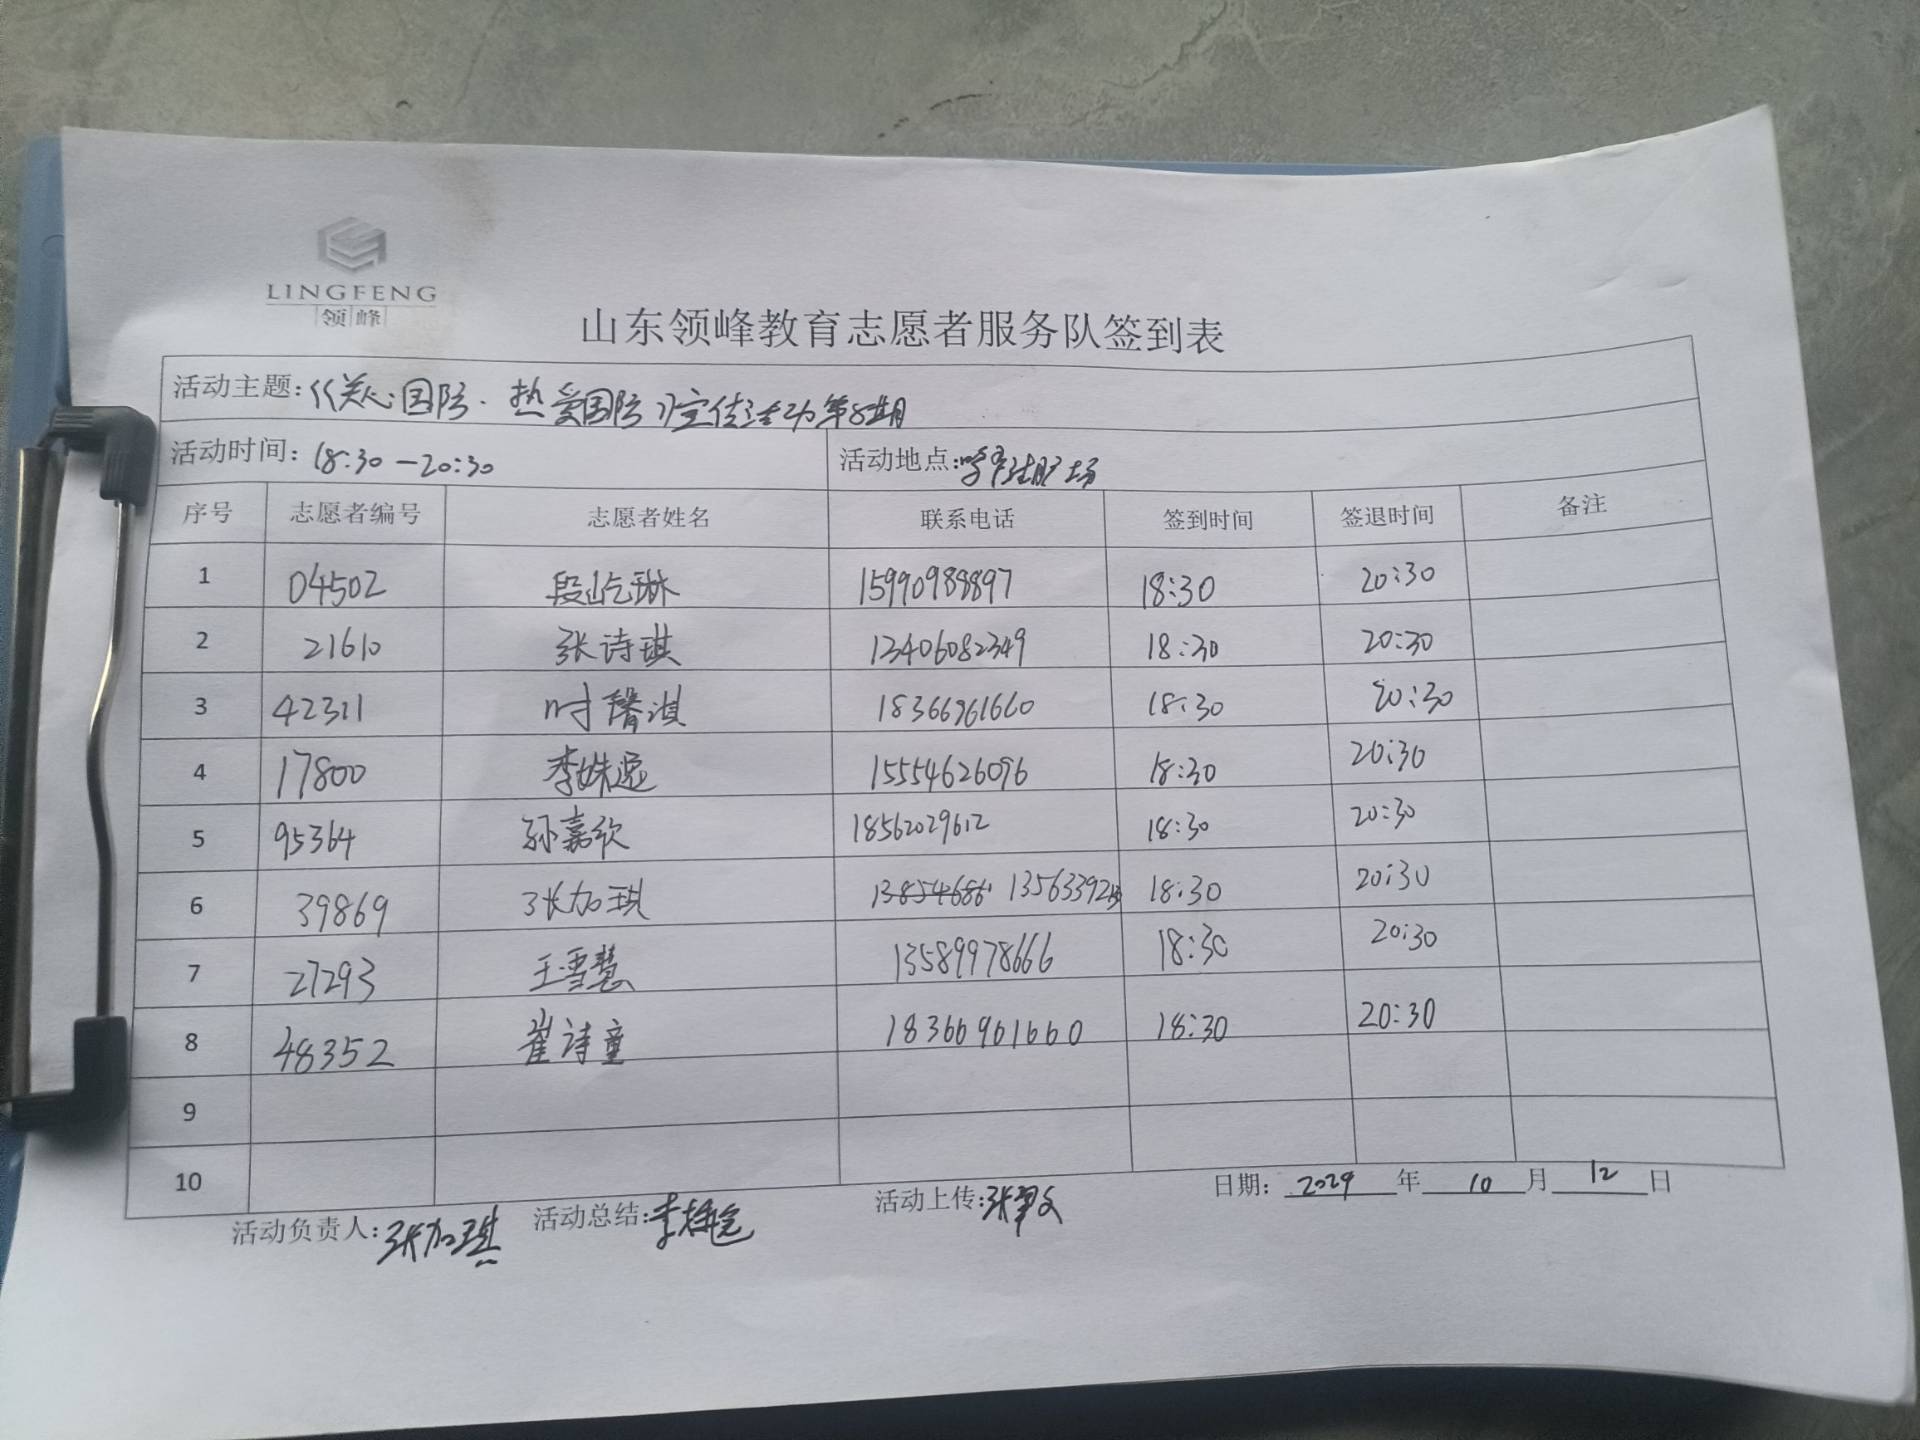 LINGFENG
领峰
山东领峰教育志愿者服务队签到表
活动主题:《关心国防·热爱国防》宣传活动第8期
活动时间: 18:30—20:30 活动地点:
序号 志愿者编号 志愿者姓名 联系电话 签到时间 签退时间 备注
1 04502 段屹琳 15990988897 18:30 20:30
2 21610 张诗琪 13406082349 18:30 20:30
3 42311 时馨淇 18366961660 18:30 20:30
4 17800 李姝逸 15554626096 18:30 20:30
5 95364 孙嘉欣 18562029612 18:30 20:30
6 39869 张加琪 18:30 20:30
7 27293 王雪慧 13589978666 18:30 20:30
8 48352 崔诗童 18366961660 18:30 20:30
9
10
活动负责人:张加琪 活动总结: 活动上传: 日期: 2024 年 10 月 12 日